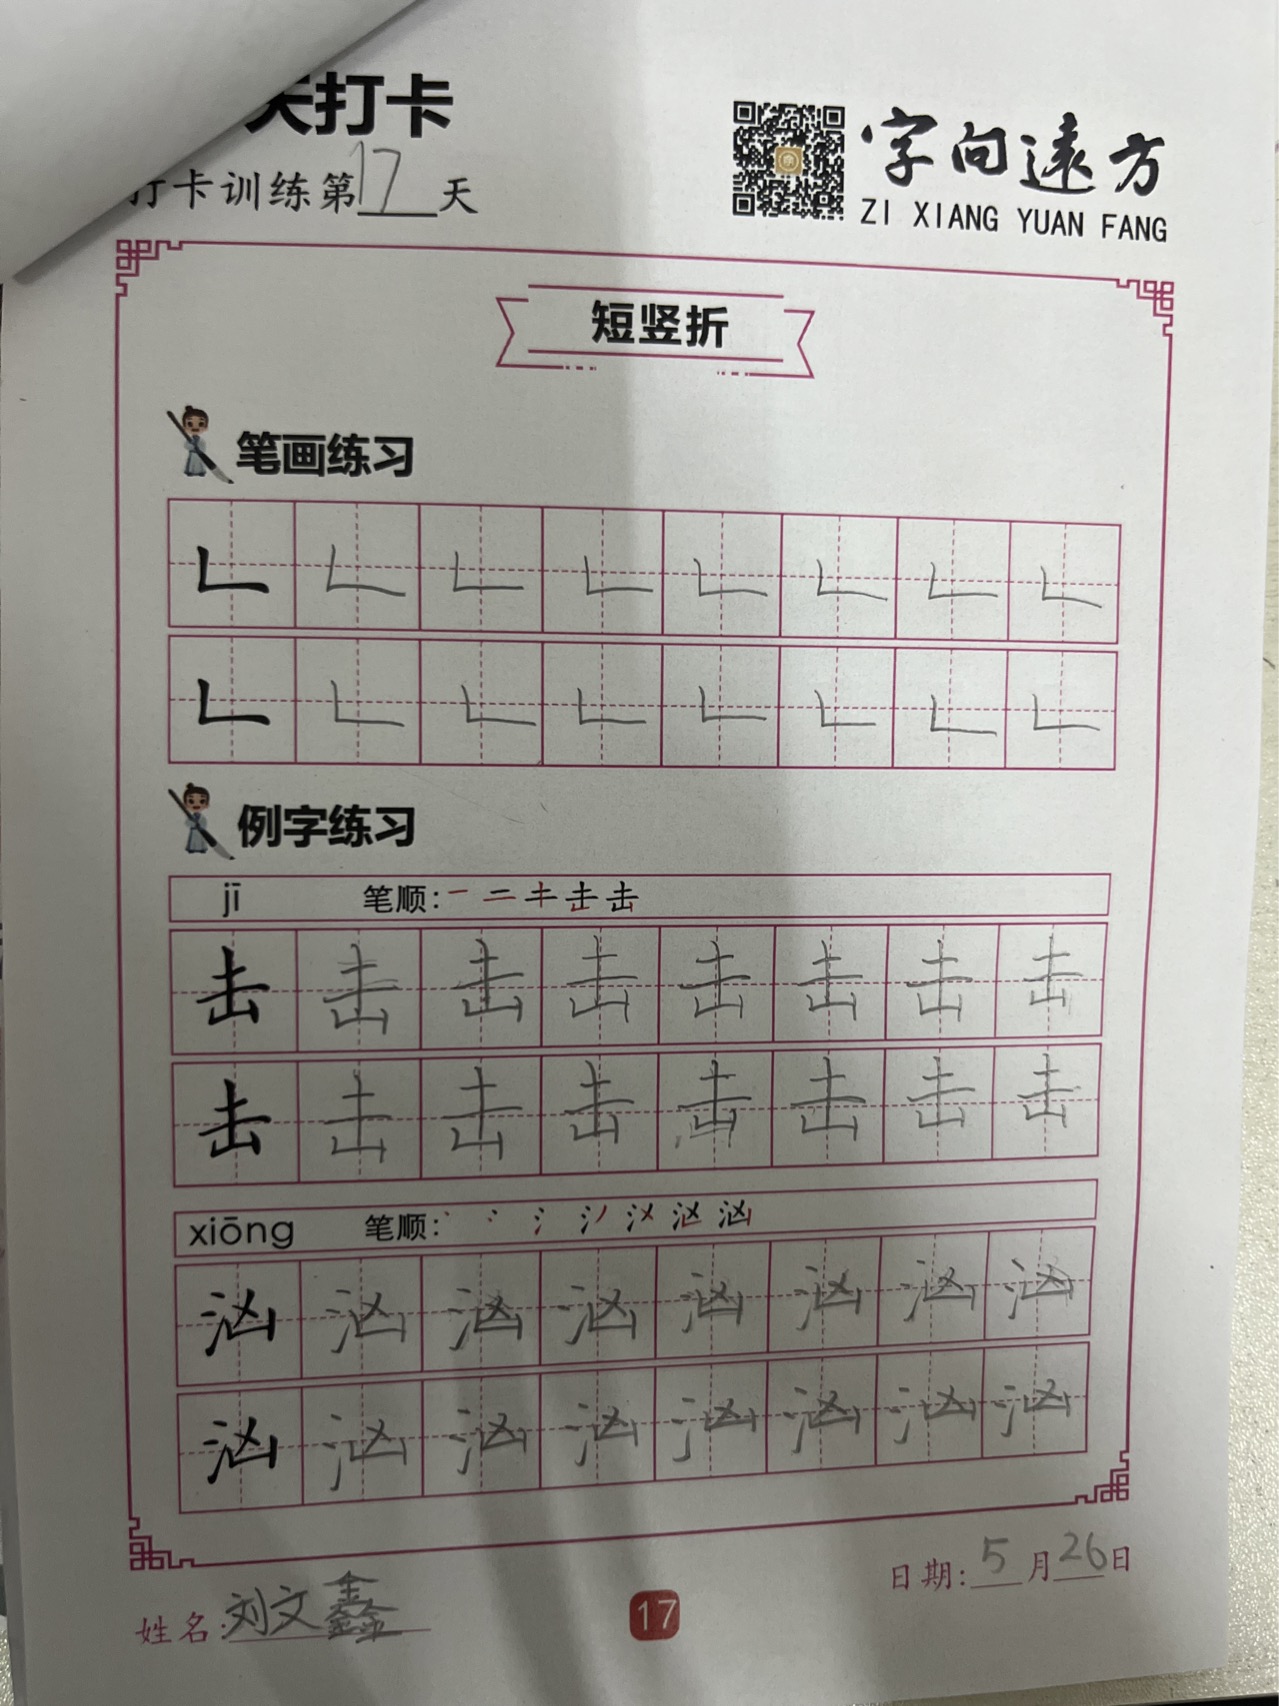 天打卡
字向遠方
ZI XIANG YUAN FANG
打卡训练第17天
短竖折
笔画练习
𠃊 𠃊 𠃊 𠃊 𠃊 𠃊 𠃊 𠃊
𠃊 𠃊 𠃊 𠃊 𠃊 𠃊 𠃊 𠃊
例字练习
jī 笔顺:
击 击 击 击 击 击 击 击
击 击 击 击 击 击 击 击
xiōng 笔顺:
汹 汹 汹 汹 汹 汹 汹 汹
汹 汹 汹 汹 汹 汹 汹 汹
日期:5月26日
姓名:刘文鑫
17